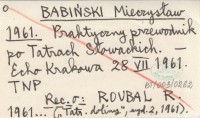 BABIŃSKI Mieczysław
1961. Praktyczny przewodnik
po Tatrach Słowackich. —
Echo Krakowa 28 VII 1961.
TNP
Rec. o: ROUBAL R.
1961... („Tatr. doliny", wyd. 2, 1961).